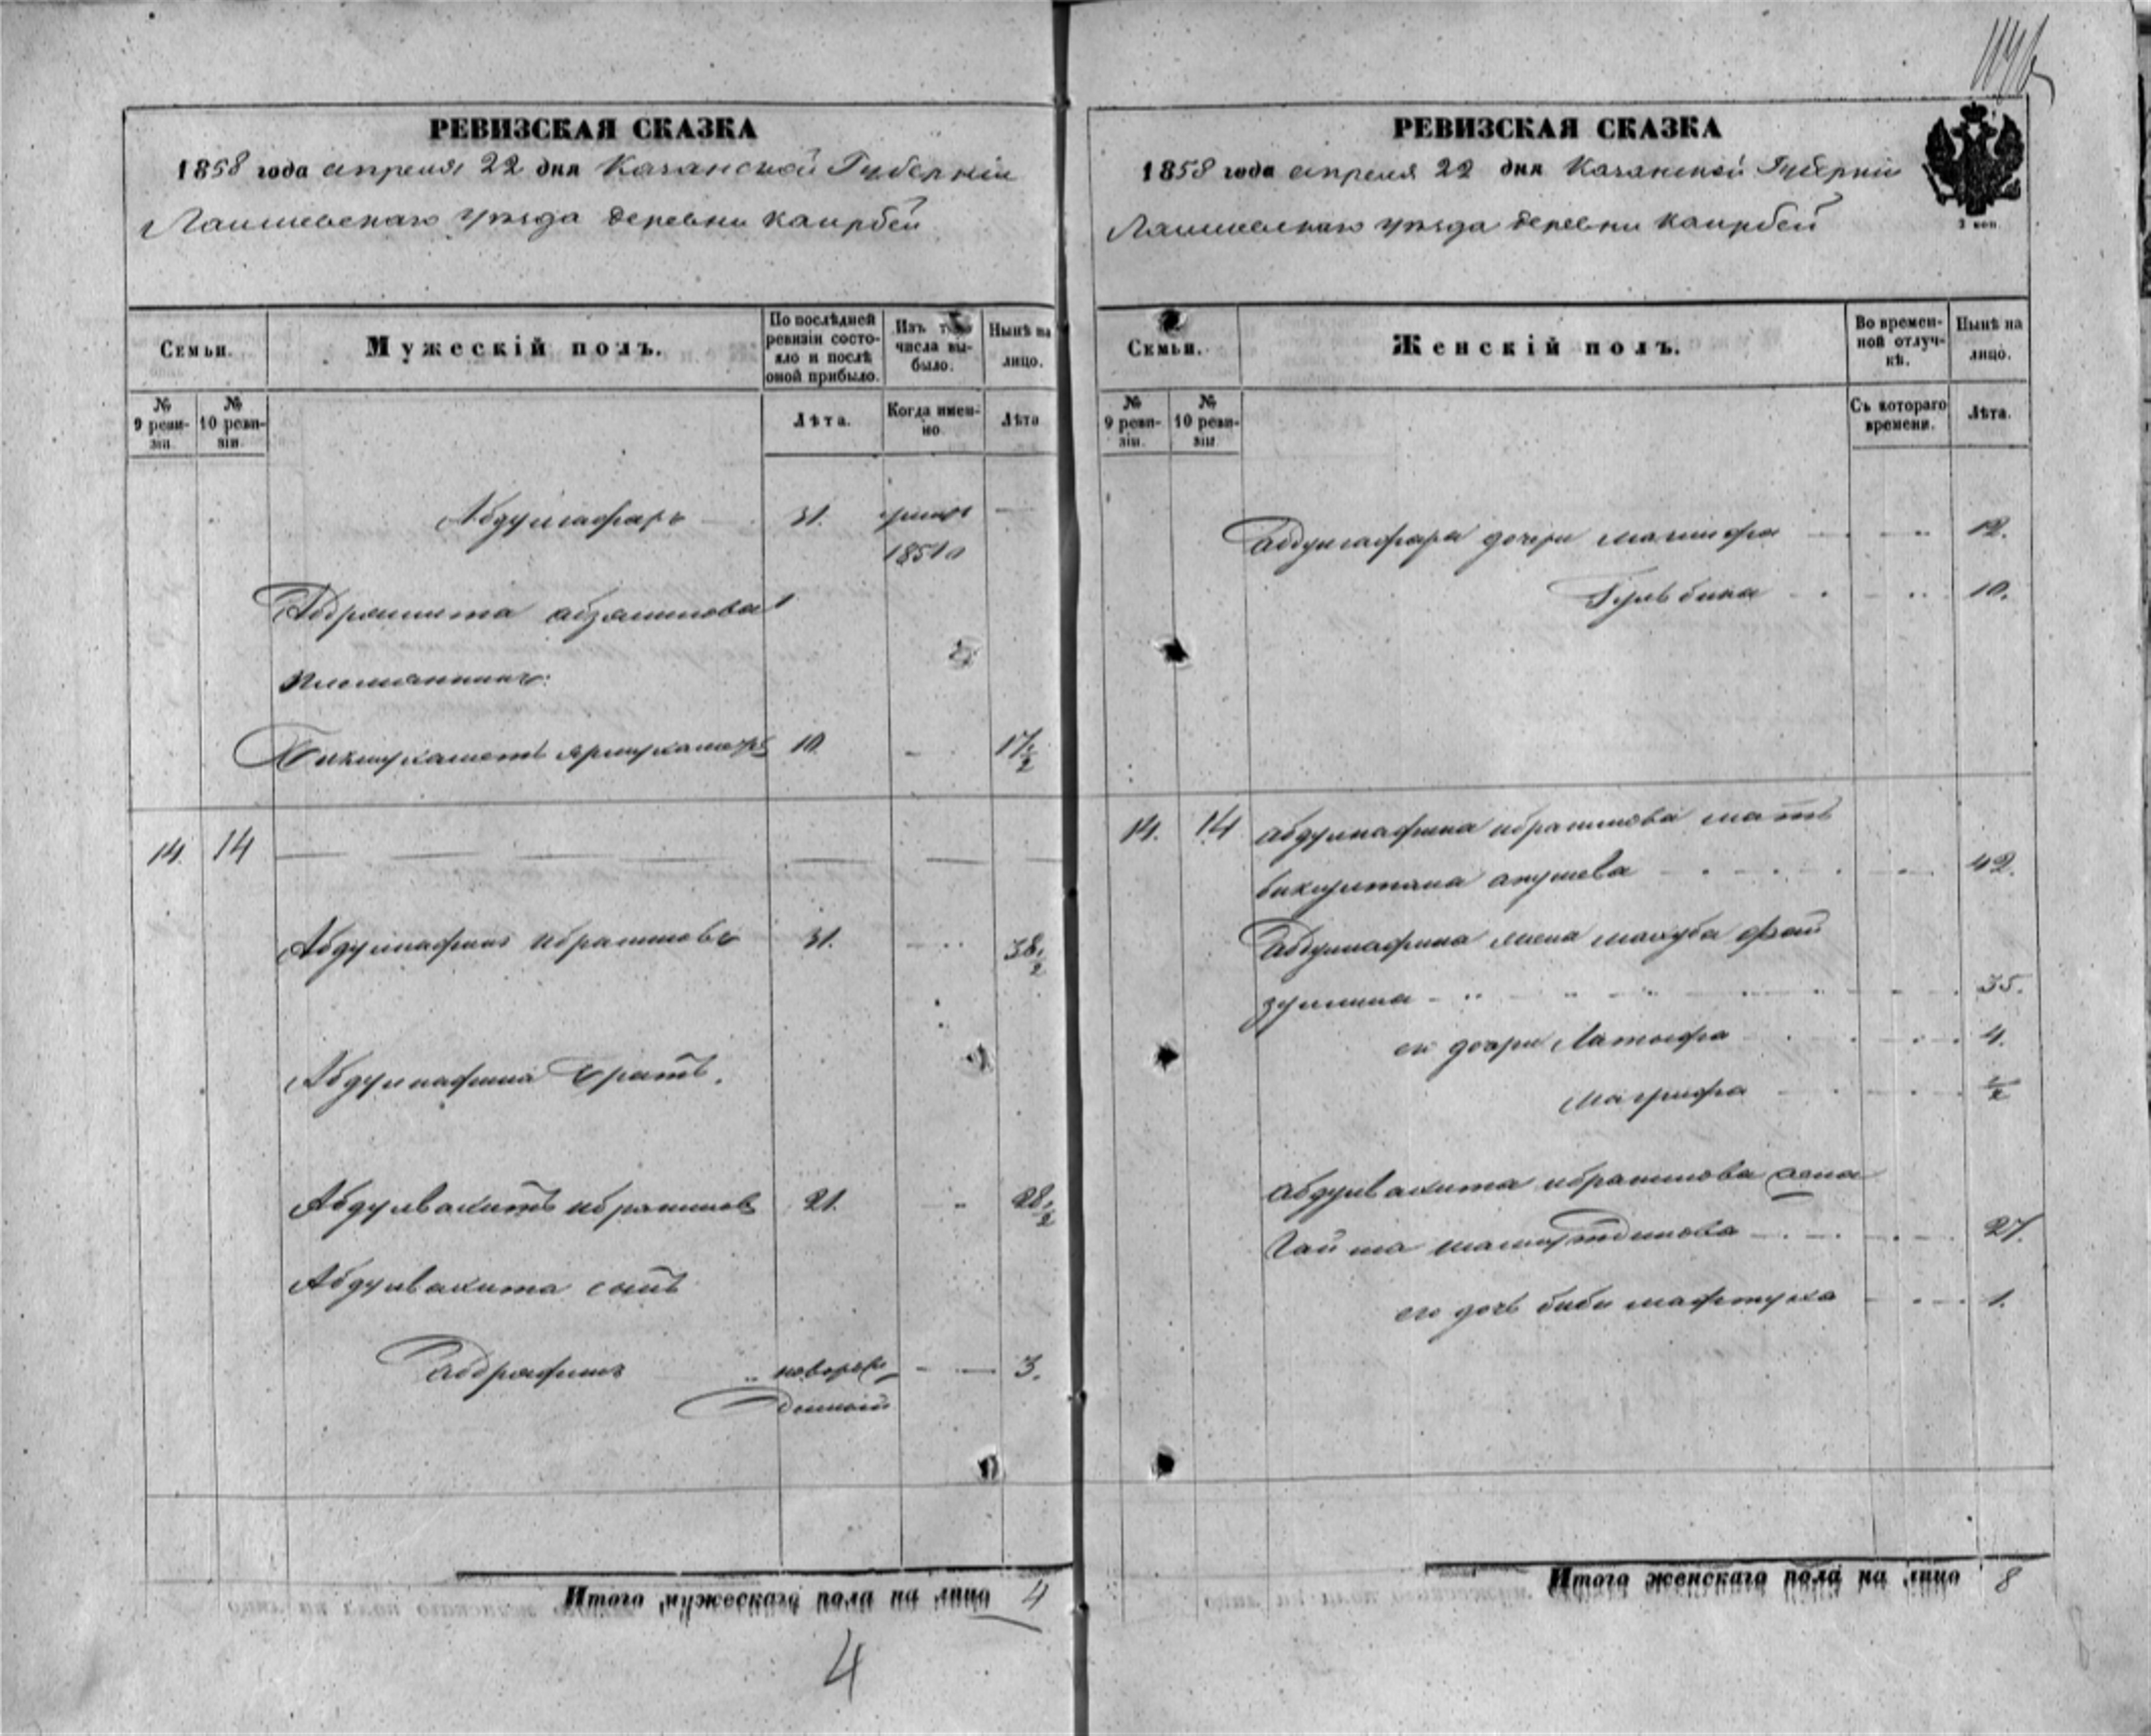 РЕВИЗСКАЯ СКАЗКА
1858 года апреля 22 дня Казанской Губернiи
Лаишевскаго уѣзда деревни Каирбей
Семьи.
Мужескій полъ.
По послѣдней ревизіи состояло и послѣ оной прибыло.
Изъ того числа выбыло.
Нынѣ на лицо.
№ 9 ревизіи.
№ 10 ревизіи.
Лѣта.
Когда именно
Лѣта
Абдулгафаръ 31. умеръ —
1851 г
Абдрашита абзялилова
племянникъ:
Бикмухаметъ ярмухаметовъ 10. — 17 1/2
14. 14
Абдулнафикъ ибрагимовъ 31. — 38 1/2
Абдулнафика братъ.
Абдулвахитъ ибрагимовъ 21. — 28 1/2
Абдулвахита сынъ
Абдрафикъ новорож — 3.
денный
Итого мужескаго пола на лицо 4
4
РЕВИЗСКАЯ СКАЗКА
1858 года апреля 22 дня Казанской Губернiи
Лаишевскаго уѣзда деревни Каирбей
3 коп.
Семьи.
Женскій полъ.
Во временной отлучкѣ.
Нынѣ на лицо.
№ 9 ревизіи.
№ 10 ревизіи
Съ котораго времени.
Лѣта.
Абдулгафара дочери 12.
Гульбика 10.
14. 14 абдулнафика ибрагимова мать
42.
Абдулнафика жена махуба фай
зуллина 35.
его дочери Латыфа 4.
Магруфа 1/2
Абдулвахита ибрагимова жена
27.
его дочь биби мафтуха 1.
Итого женскаго пола на лицо 8